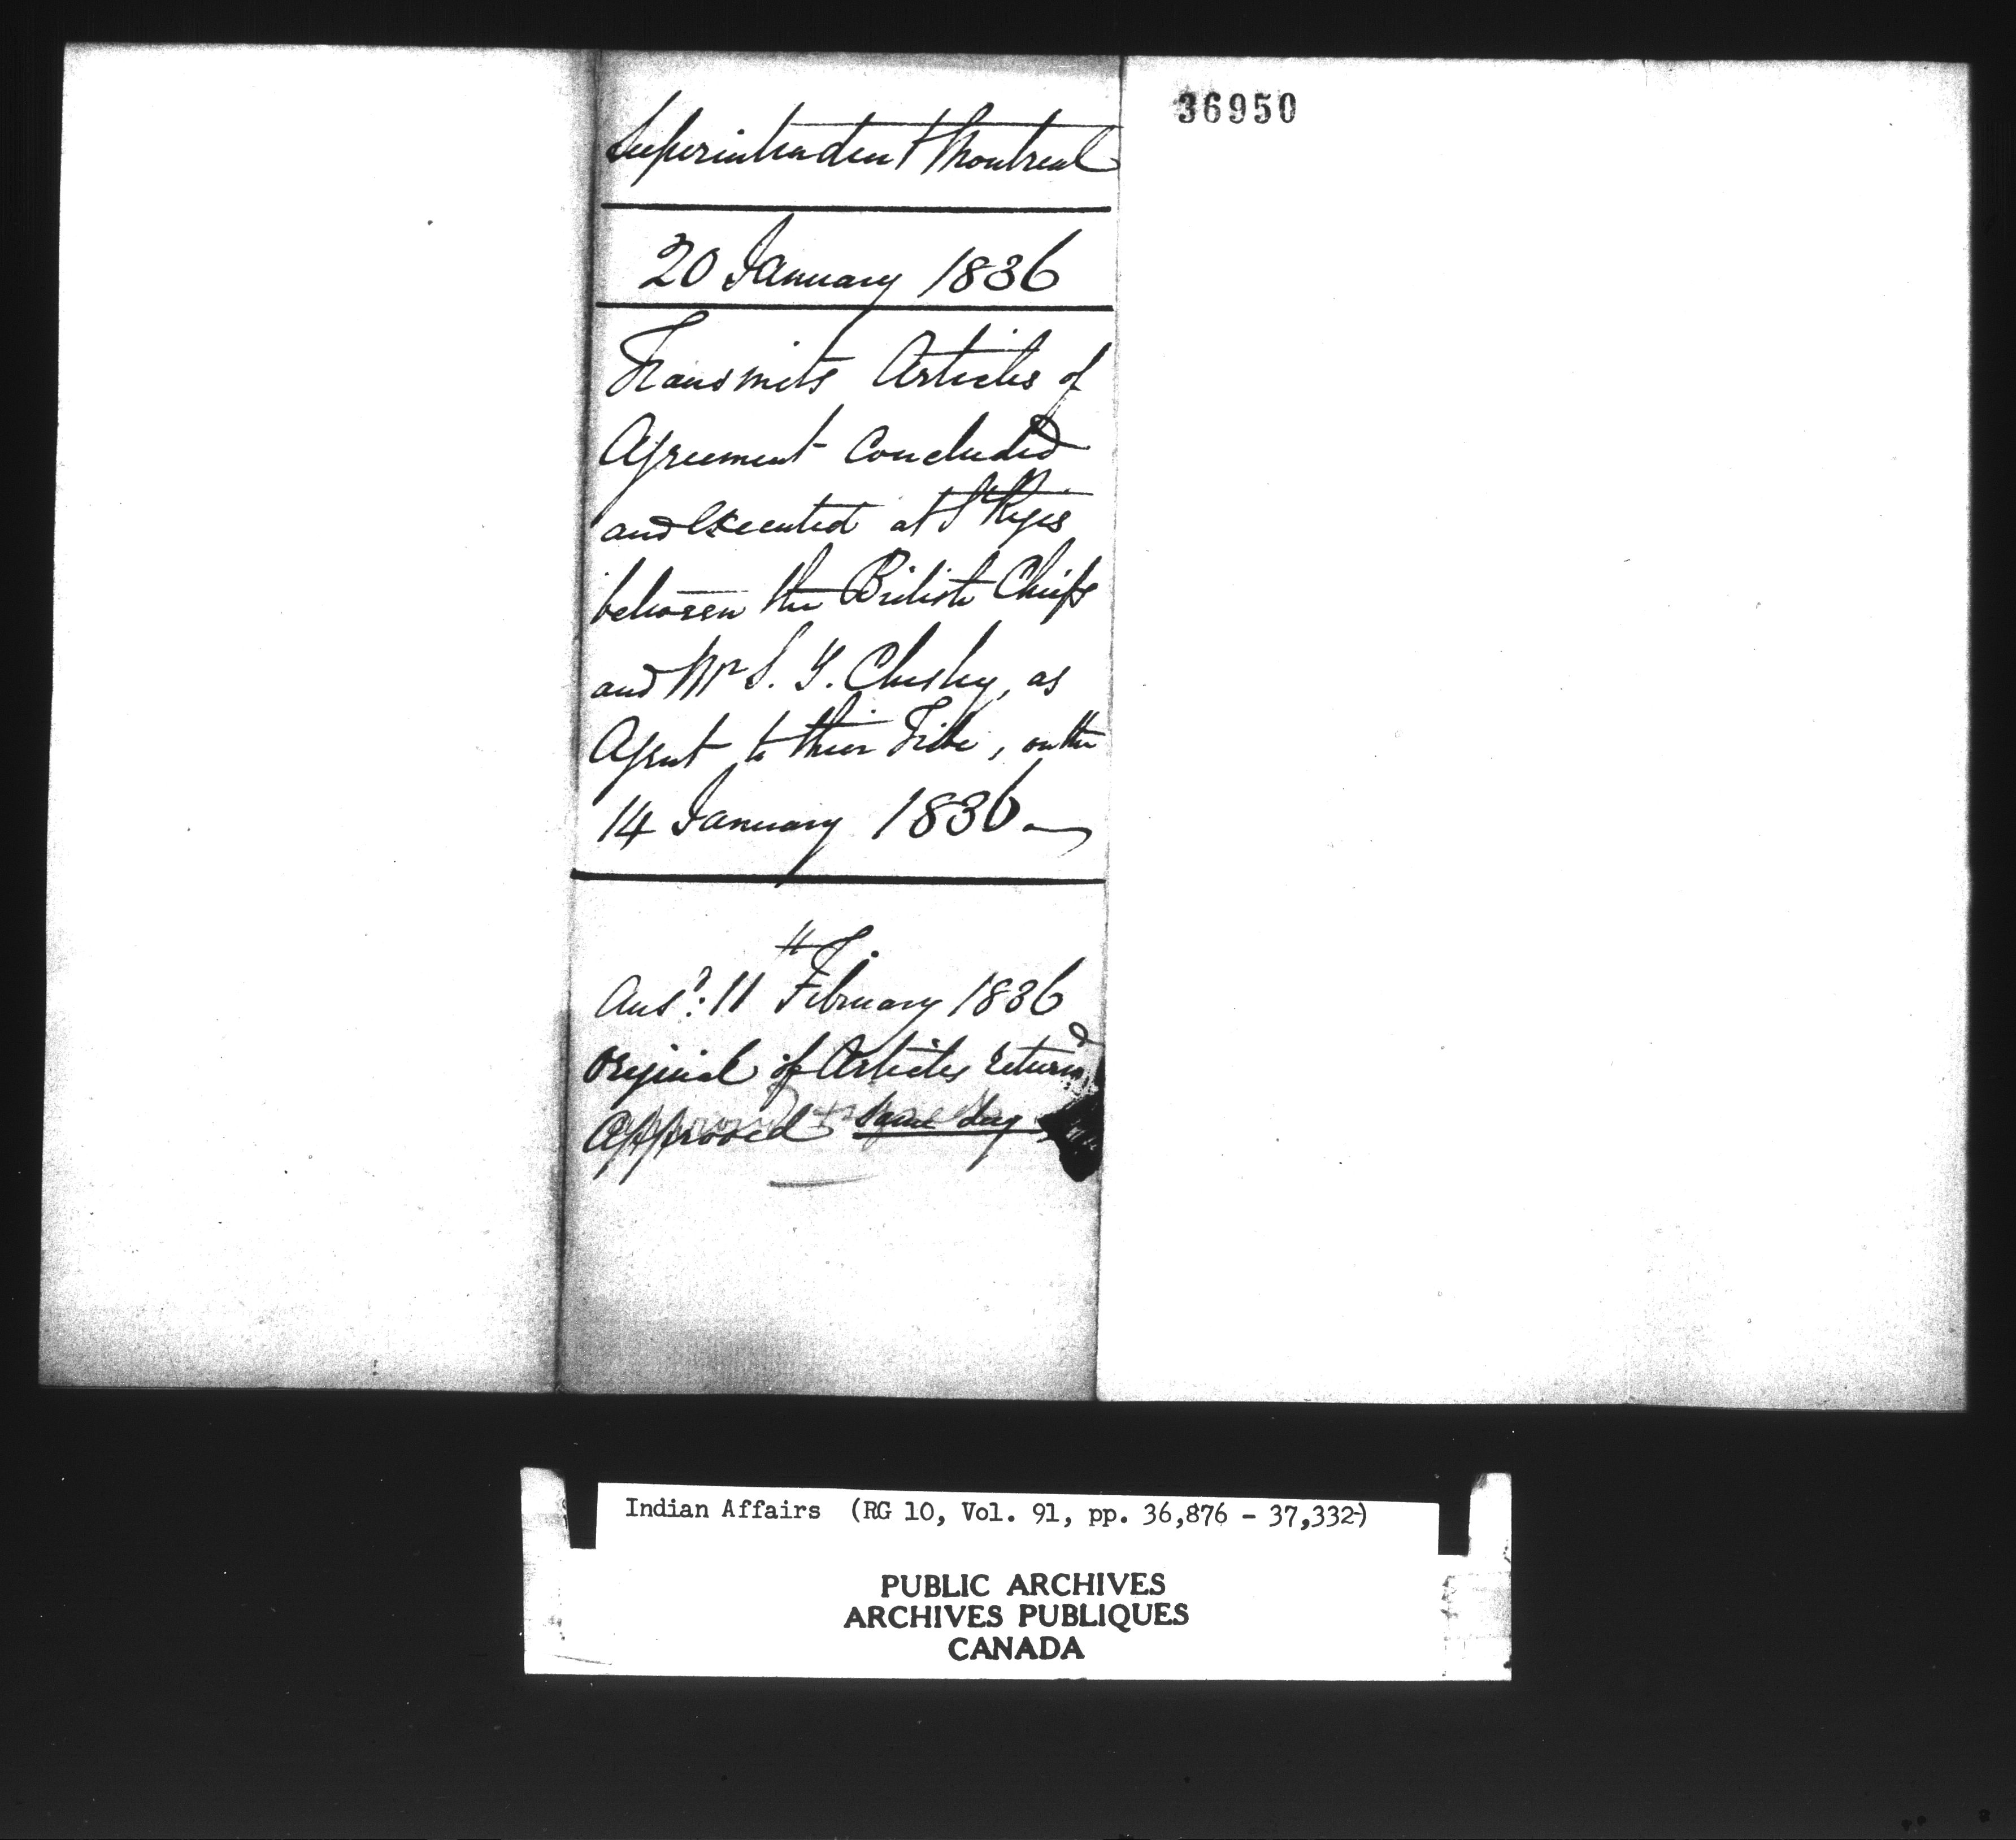 36950
Superintendent Montreal
20 January 1836
Transmits Articles of
Agreement Concluded
and Executed at St Regis
between the British Chiefs
and Mr S. Y. Chesley, as
Agent to their Tribe, on the
14 January 1836
Ansd: 11th February 1836
Original of Articles returnd
Approved same day
Indian Affairs (RG 10, Vol. 91, pp. 36,876 - 37,332)
PUBLIC ARCHIVES
ARCHIVES PUBLIQUES
CANADA